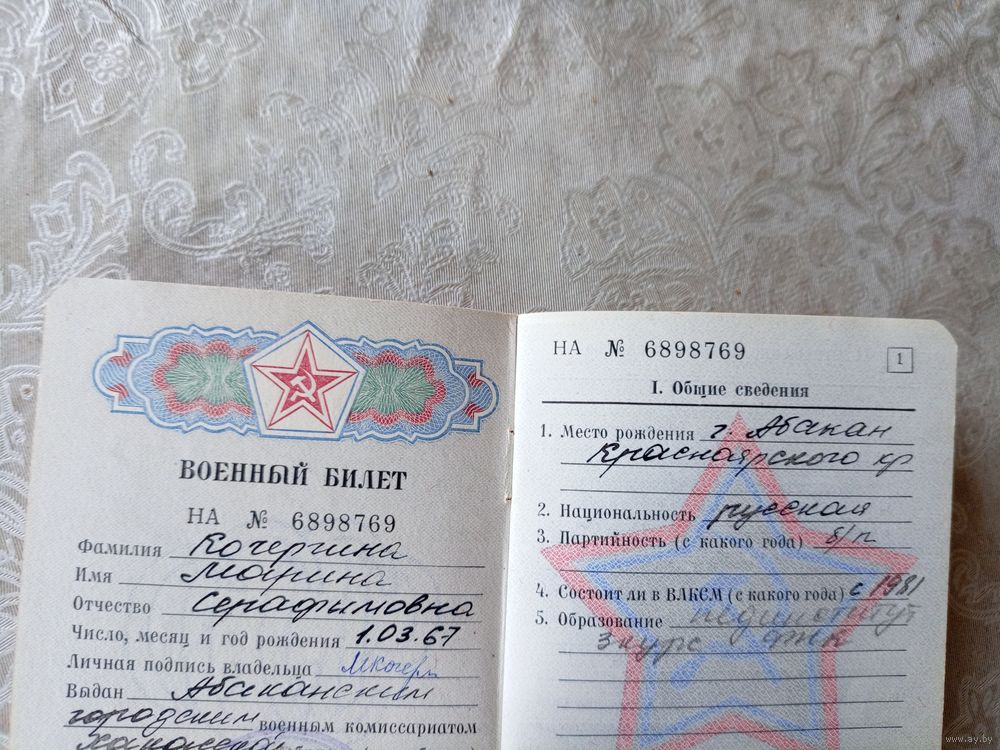 ВОЕННЫЙ БИЛЕТ
НА № 6898769
Фамилия Кочергина
Имя Марина
Отчество Серафимовна
Число, месяц и год рождения 1.03.67
Личная подпись владельца МКочерг
Выдан Абаканским
городским военным комиссариатом
НА № 6898769
1
I. Общие сведения
1. Место рождения г. Абакан
Красноярского кр
2. Национальность русская
3. Партийность (с какого года) б/п
4. Состоит ли в ВЛКСМ (с какого года) с 1981
5. Образование пединститут
3 курс
www.ay.by